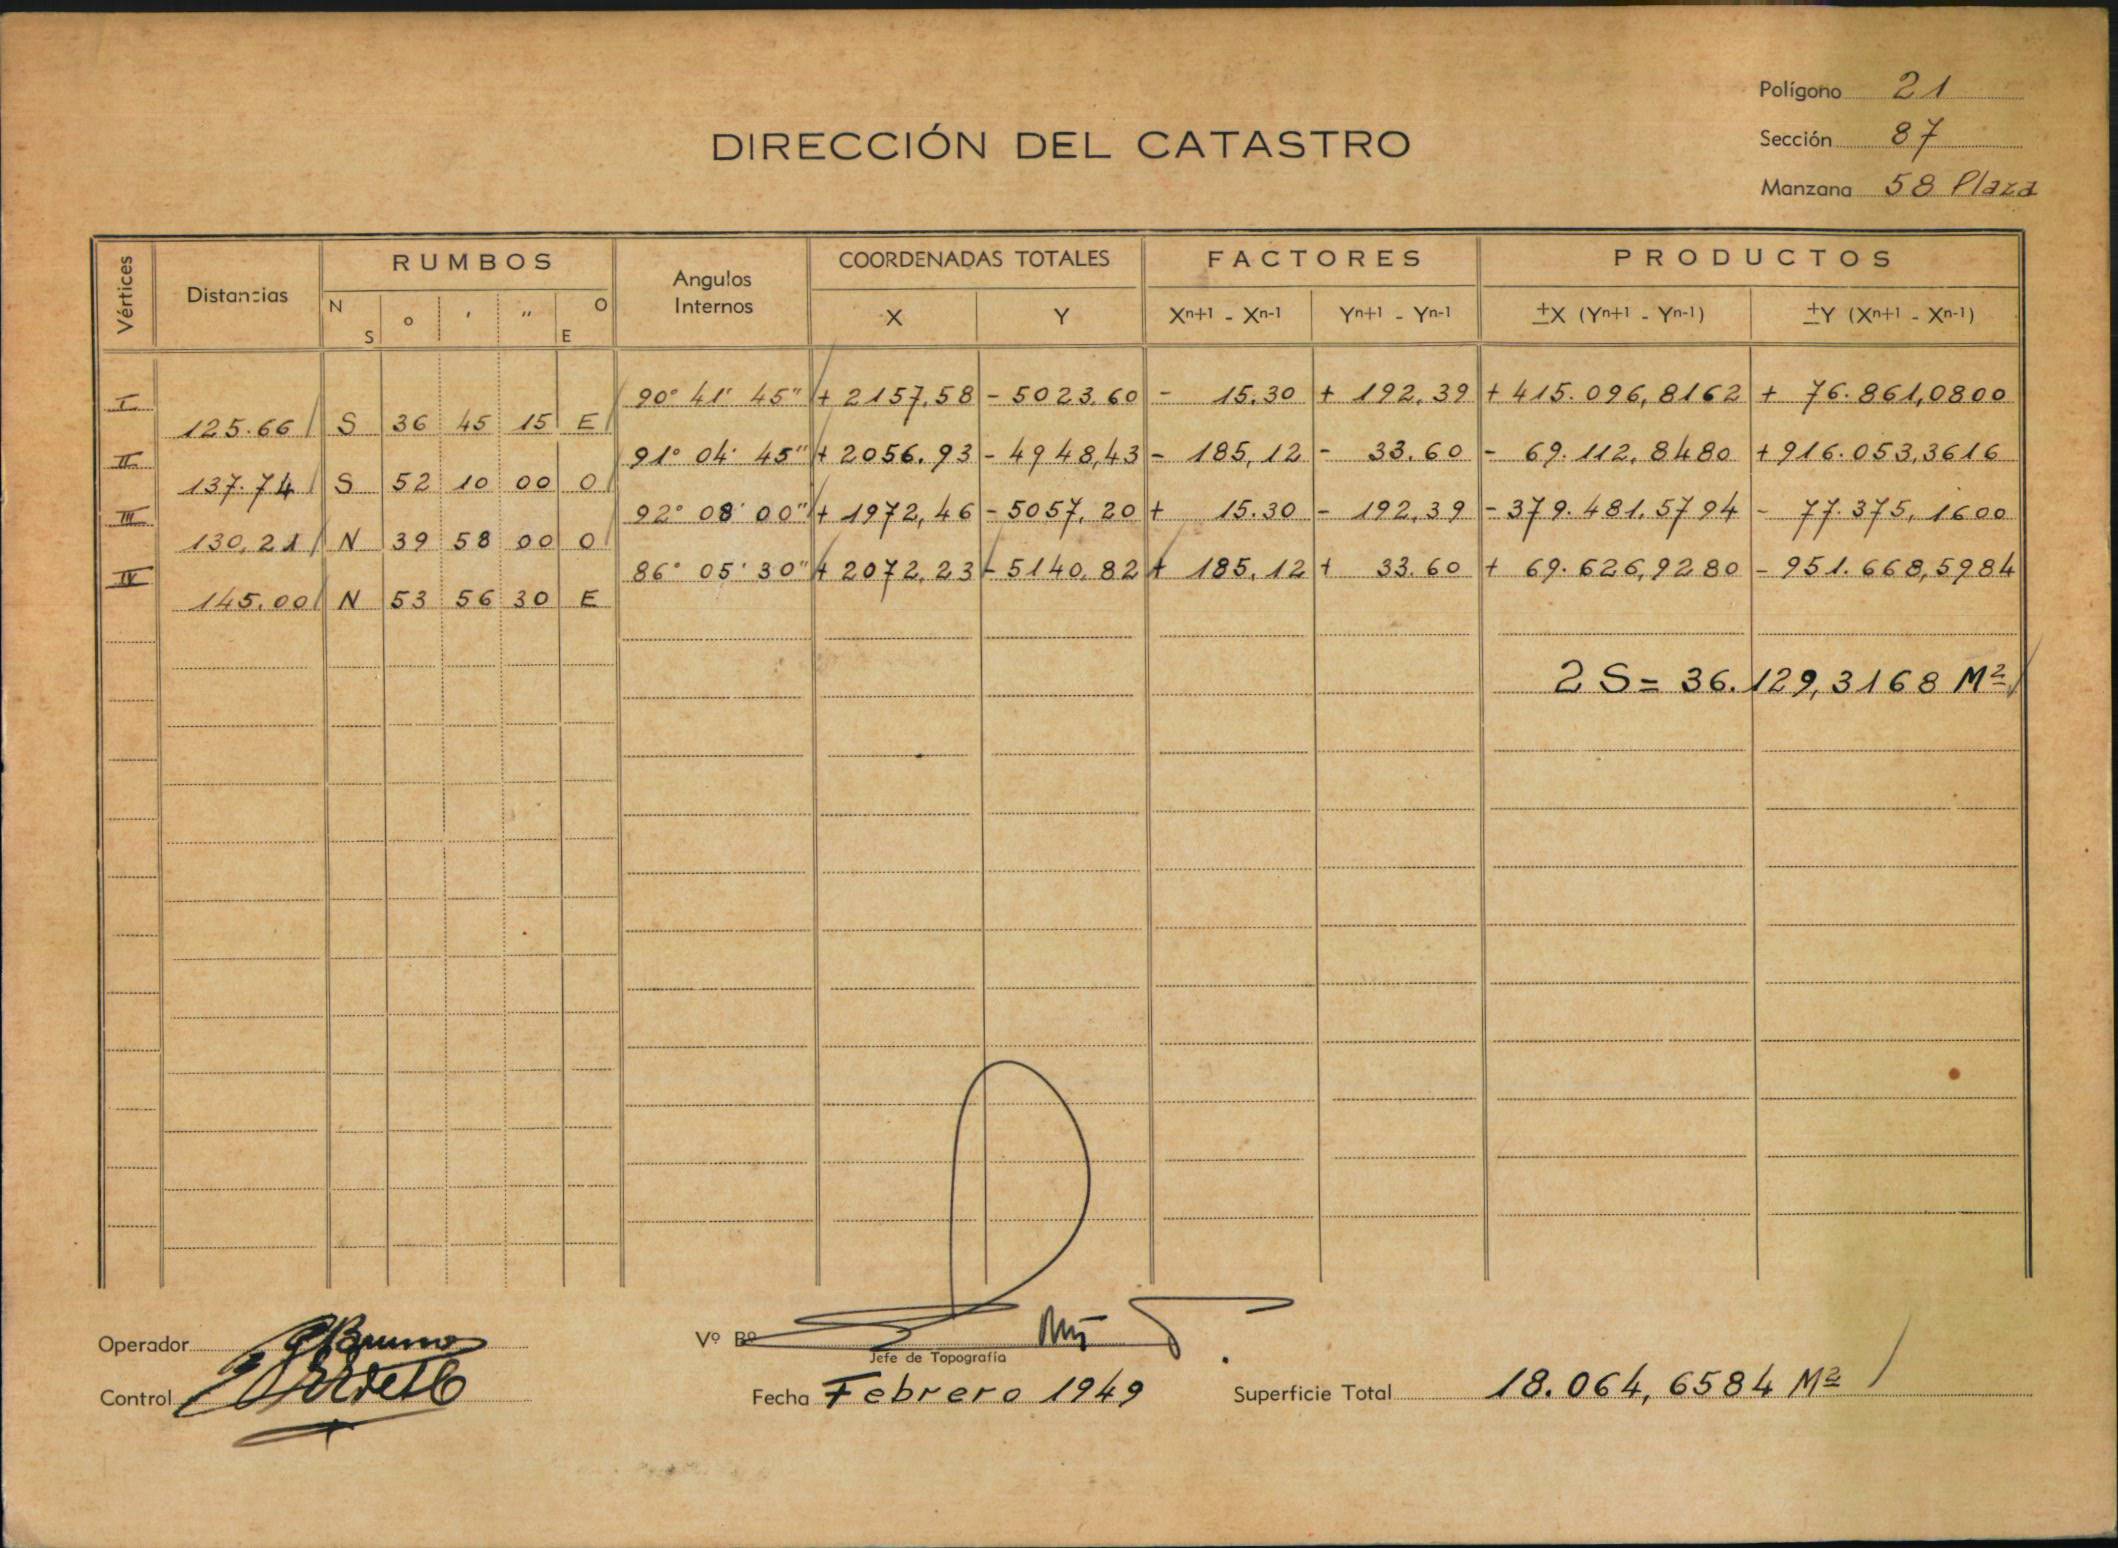 Polígono 21
DIRECCIÓN DEL CATASTRO
Sección 87
Manzana 58 Plaza
Vértices Distancias RUMBOS Angulos Internos COORDENADAS TOTALES FACTORES PRODUCTOS
N S o ' " O E X Y Xn+1 - Xn-1 Yn+1 - Yn-1 ±X (Yn+1 - Yn-1) ±Y (Xn+1 - Xn-1)
I 90° 41' 45" + 2157,58 - 5023,60 - 15.30 + 192,39 + 415.096,8162 + 76.861,0800
125.66 S 36 45 15 E
II 91° 04' 45" + 2056.93 - 4948,43 - 185,12 - 33.60 - 69.112,8480 + 916.053,3616
137.74 S 52 10 00 O
III 92° 08' 00" + 1972,46 - 5057,20 + 15.30 - 192,39 - 379.481.5794 - 77.375,1600
130,21 N 39 58 00 O
IV 86° 05' 30" + 2072,23 - 5140,82 + 185,12 + 33.60 + 69.626,9280 - 951.668,5984
145.00 N 53 56 30 E
2 S = 36.129,3168 M²
Operador Bruno
Vº Bº
Jefe de Topografía
Control
Fecha Febrero 1949
Superficie Total 18.064,6584 M²